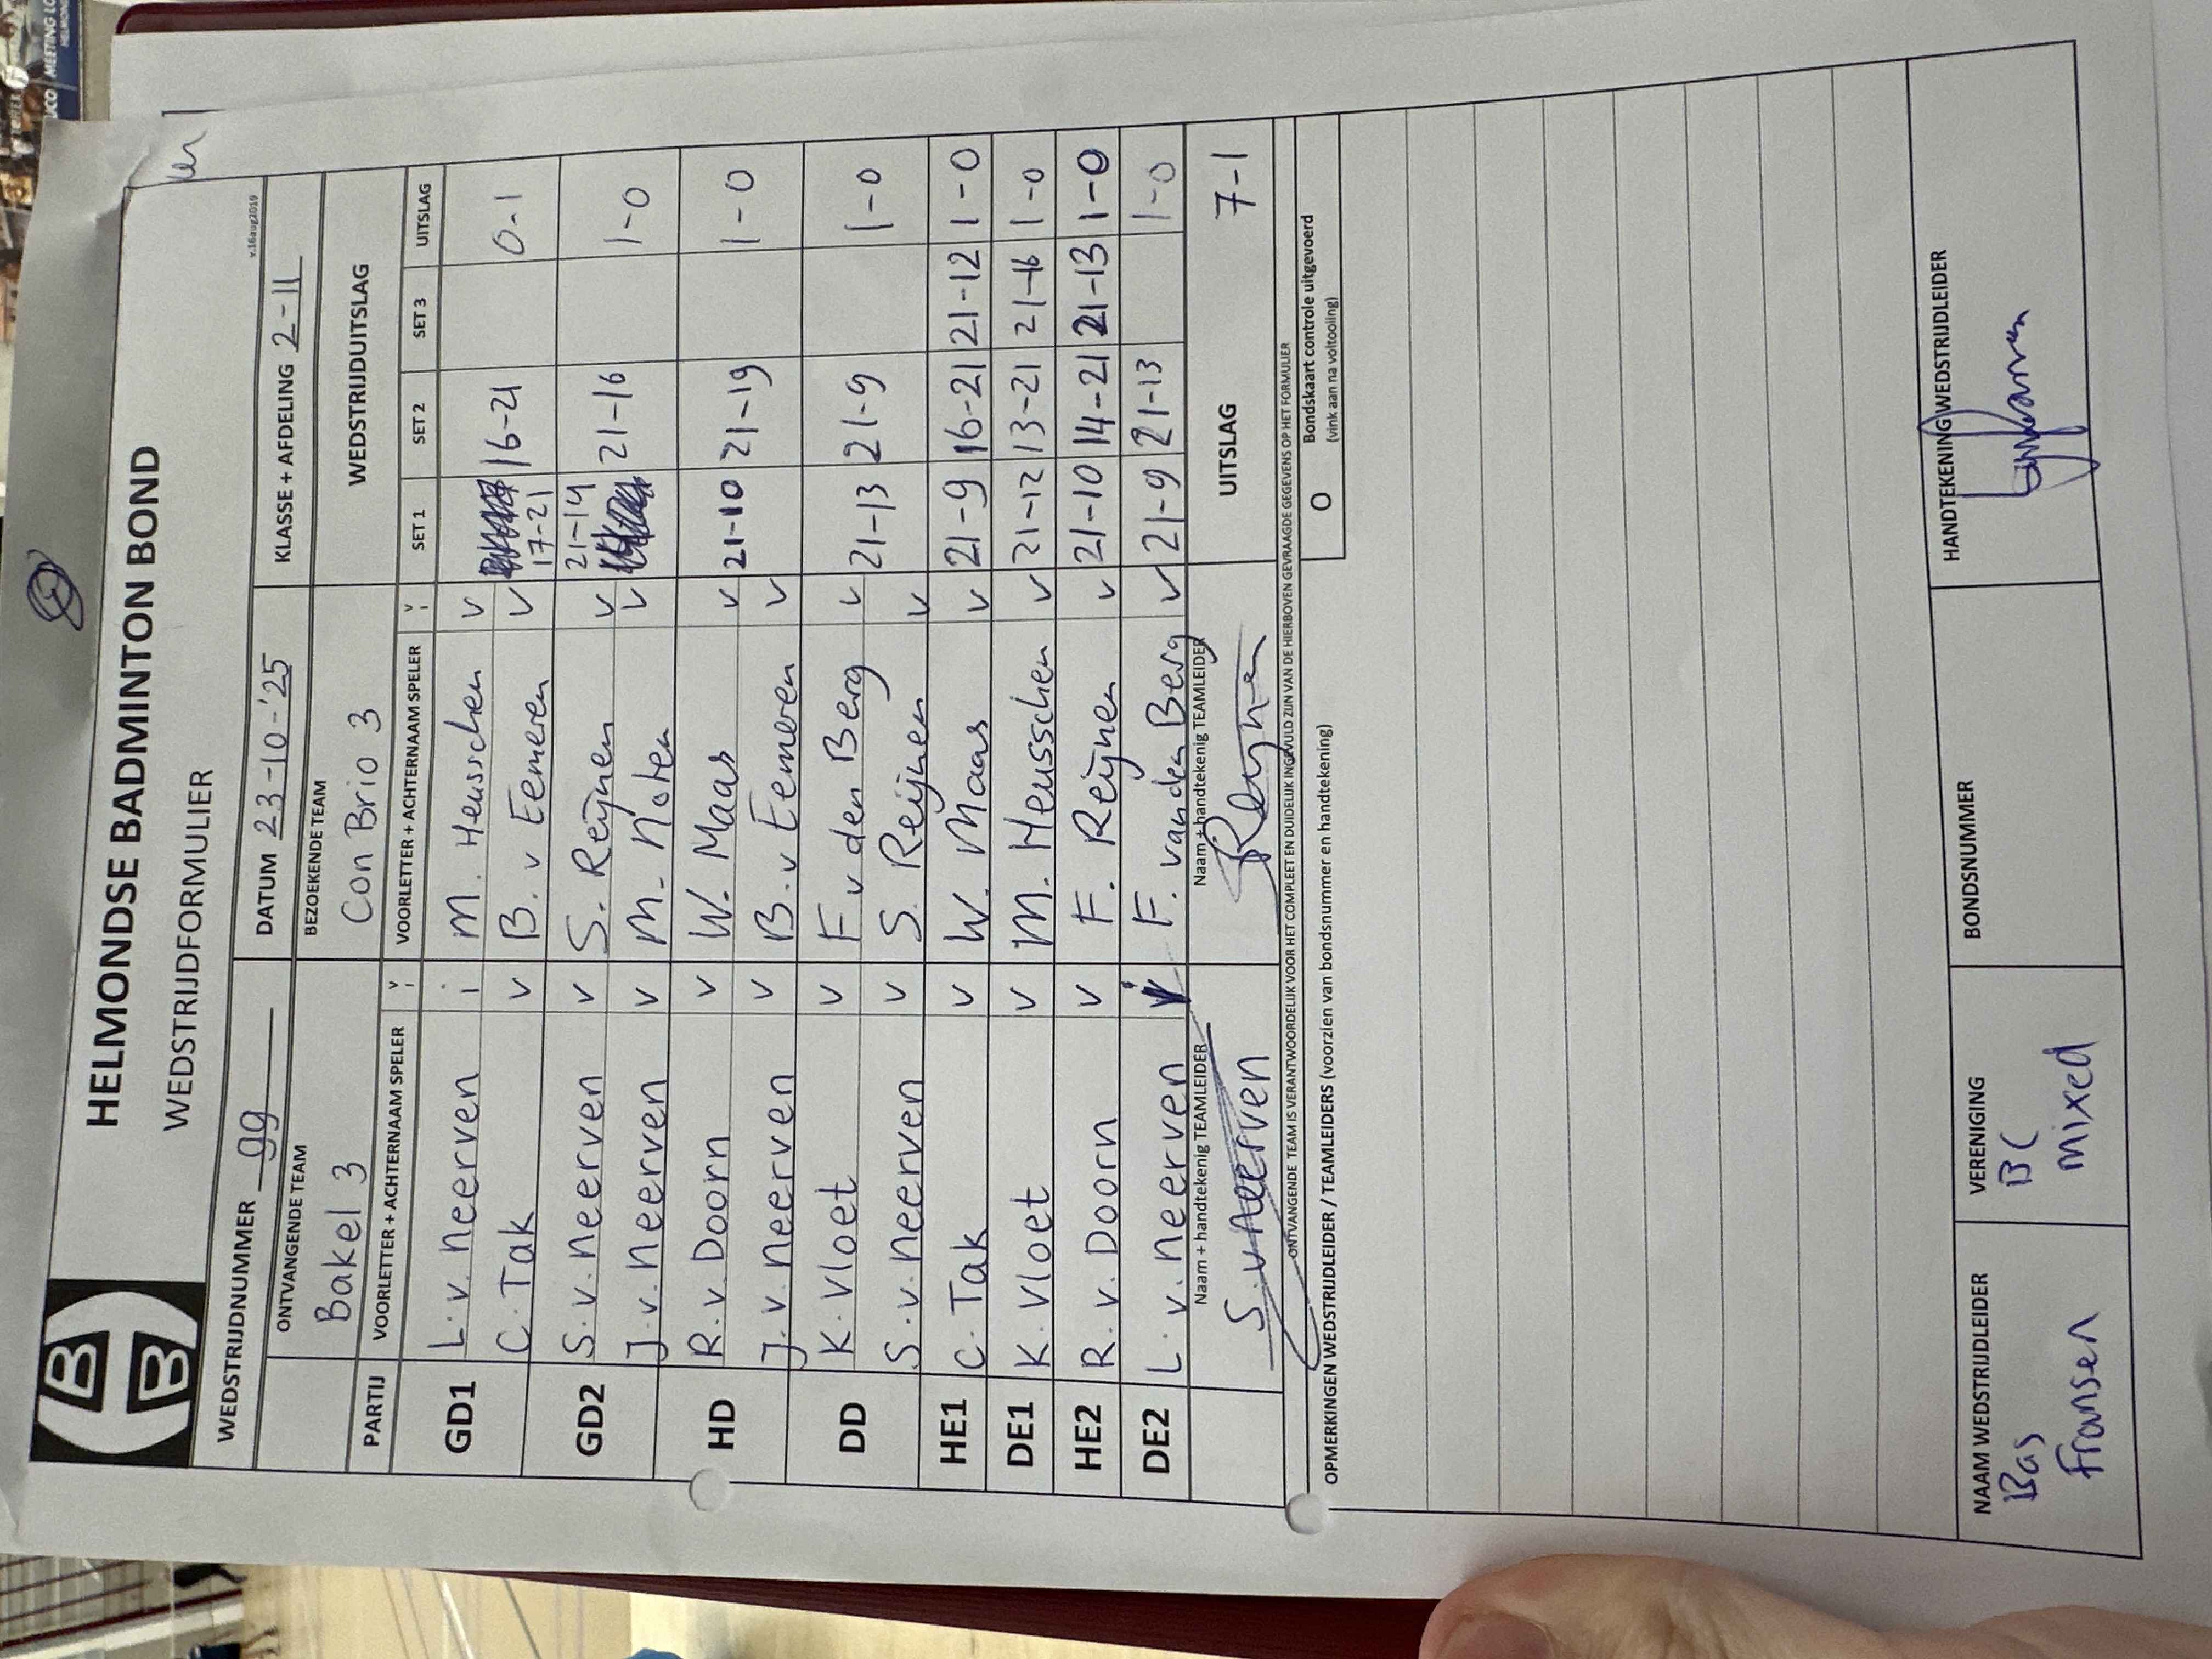 HELMONDSE BADMINTON BOND
WEDSTRIJDFORMULIER
v.16aug2019
WEDSTRIJDNUMMER 99 DATUM 23-10-'25 KLASSE + AFDELING 2-11
ONTVANGENDE TEAM BEZOEKENDE TEAM WEDSTRIJDUITSLAG
Bakel 3 Con Brio 3
PARTIJ VOORLETTER + ACHTERNAAM SPELER V i VOORLETTER + ACHTERNAAM SPELER V i SET 1 SET 2 SET 3 UITSLAG
GD1 L. v. Neerven i M. Heusschen v
C. Tak v B. v Eemeren v 17-21 16-21 0-1
GD2 S. v. Neerven v S. Reijnen v 21-14 21-16 1-0
J. v. Neerven v M. Noten v
HD R. v. Doorn v W. Maas v 21-10 21-19 1-0
J. v. Neerven v B. v Eemeren v
DD K. Vloet v F v den Berg v 21-13 21-9 1-0
S. v. Neerven v S. Reijnen v
HE1 C. Tak v W. Maas v 21-9 16-21 21-12 1-0
DE1 K. Vloet v M. Heusschen v 21-12 13-21 21-16 1-0
HE2 R. v. Doorn v F. Reijnen v 21-10 14-21 21-13 1-0
DE2 L. v. Neerven F. van den Berg v 21-9 21-13 1-0
Naam + handtekenig TEAMLEIDER Naam + handtekenig TEAMLEIDER UITSLAG 7-1
S. v Neerven Reijnen
ONTVANGENDE TEAM IS VERANTWOORDELIJK VOOR HET COMPLEET EN DUIDELIJK INGEVULD ZIJN VAN DE HIERBOVEN GEVRAAGDE GEGEVENS OP HET FORMULIER
OPMERKINGEN WEDSTRIJDLEIDER / TEAMLEIDERS (voorzien van bondsnummer en handtekening)
O Bondskaart controle uitgevoerd
(vink aan na voltooiing)
NAAM WEDSTRIJDLEIDER VERENIGING BONDSNUMMER HANDTEKENING WEDSTRIJDLEIDER
Bas BC
Fransen mixed